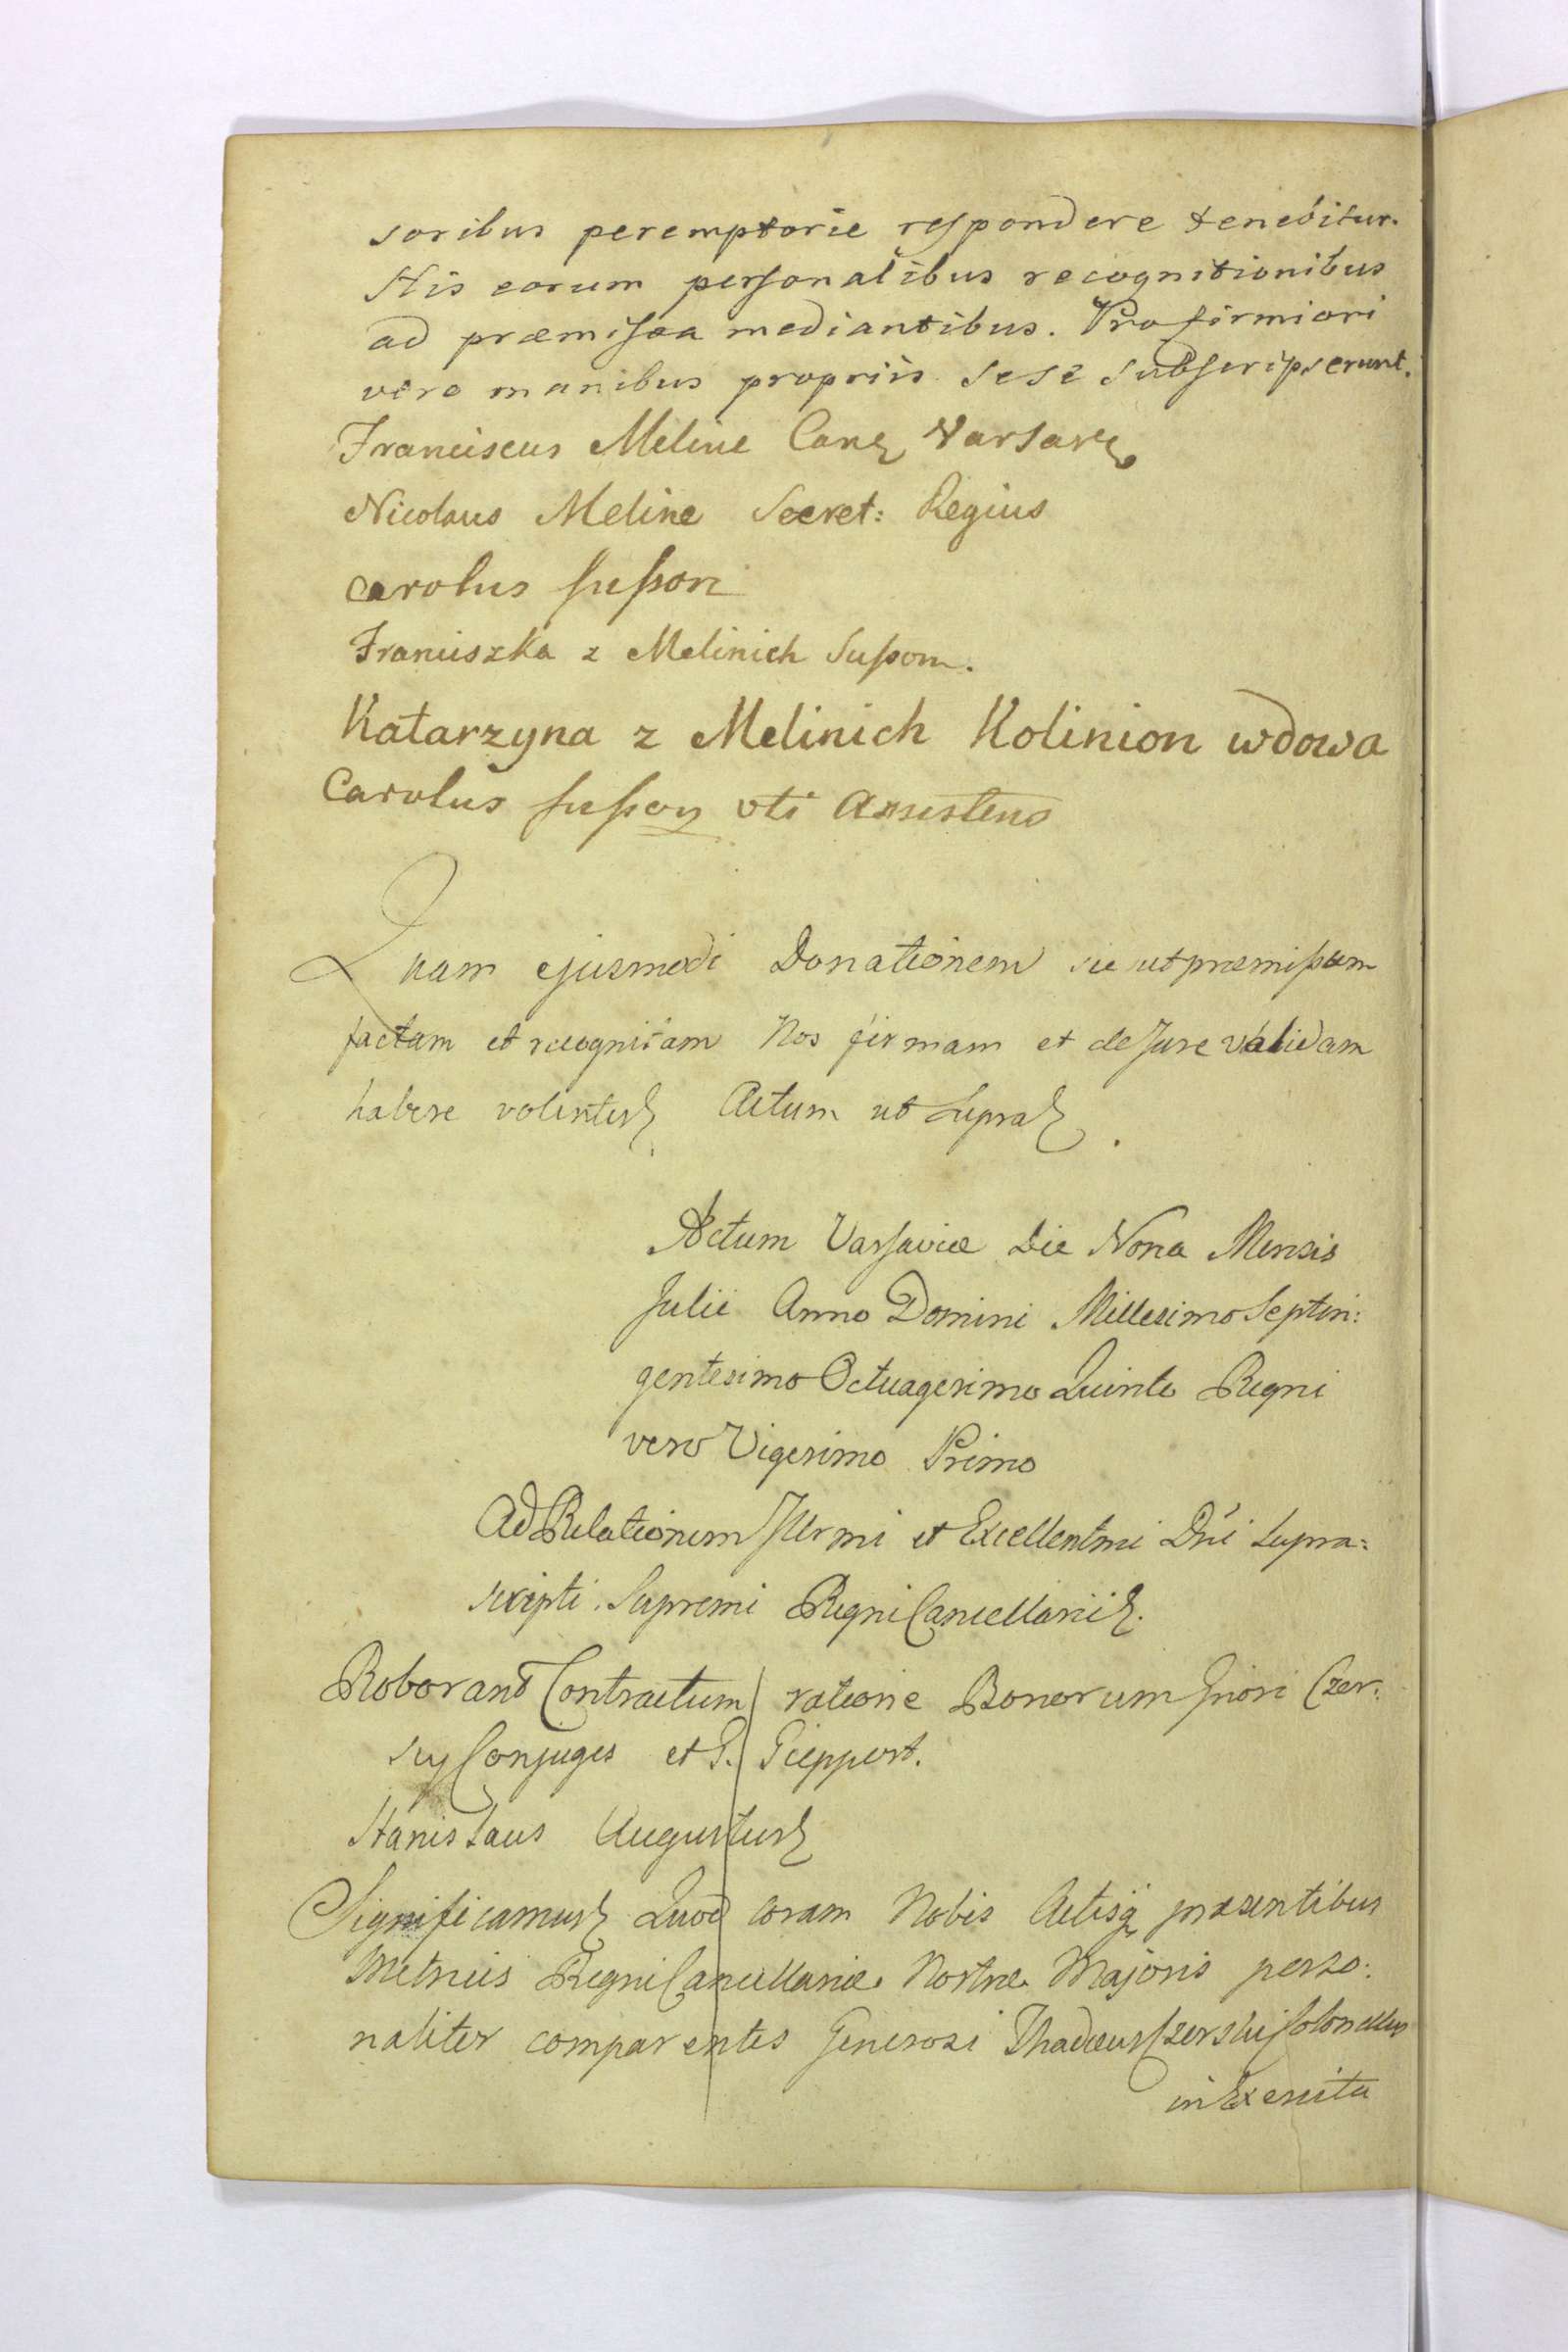 soribus peremptorie respondere tenebitur.
His eorum personalibus recognitionibus
ad præmissa mediantibus. Pro firmiori
vero manibus propriis sese subscripserunt.
Franciscus Meline Can Varsav
Nicolaus Meline Secret: Regius
Carolus susson
Franciszka z Melinich Susson.
Katarzyna z Melinich Kolinion wdowa
Carolus susson uti Assistens
Quam ejusmodi Donationem sic ut præmissum
factam et recognitam Nos firmam et de Jure validam
habere volentes Actum ut supra.
Actum Varsaviæ Die Nona Mensis
Julii Anno Domini Millesimo Septin:
gentesimo Octuagesimo Quinto Regni
vero Vigesimo Primo
Ad Relationem Illrmi et Excellentmi Dni supra:
scripti Supremi Regni Cancellarii.
Roborand Contractum ratione Bonorum Gnosi Czer:
scy Conjuges et G. Gieppert.
Stanislaus Augustus
Significamus Quod coram Nobis Actisq præsentibus
Metricis Regni Cancellariæ Nostræ Majoris perso:
naliter comparentes Generosi Thadæus Czerski Colonellus
in Exercitu